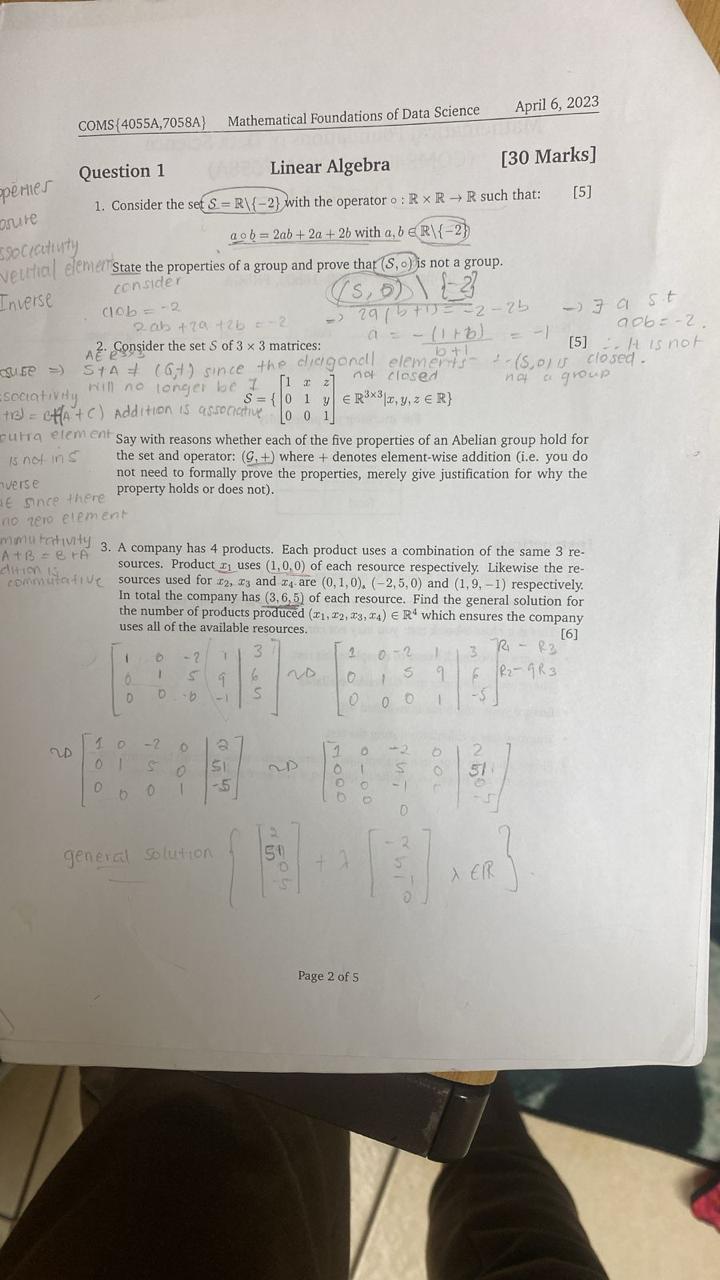 COMS{4055A,7058A} Mathematical Foundations of Data Science April 6, 2023
Question 1 Linear Algebra [30 Marks]
1. Consider the set S = ℝ\{−2} with the operator ∘ : ℝ × ℝ → ℝ such that: [5]
a ∘ b = 2ab + 2a + 2b with a, b ∈ ℝ\{−2}
State the properties of a group and prove that (S, ∘) is not a group.
consider
(S, 0) \ {-2}
Inverse
a0b = -2
2ab + 2a + 2b = -2
=> 2a(b+1) = -2 - 2b
a = -(1+b) / b+1 = -1
=> ∃ a s.t
a0b = -2.
∴ It is not
closed.
∴ (S,0) is
not a group
2. Consider the set S of 3 × 3 matrices: [5]
S + A ≠ (G,+) since the diagonal elements
will no longer be 1 not closed
S = { [1 x z; 0 1 y; 0 0 1] ∈ ℝ³ˣ³|x, y, z ∈ ℝ}
Addition is associative
Say with reasons whether each of the five properties of an Abelian group hold for
the set and operator: (G, +) where + denotes element-wise addition (i.e. you do
not need to formally prove the properties, merely give justification for why the
property holds or does not).
element
is not in S
since there
no zero element
A+B = B+A
commutative
3. A company has 4 products. Each product uses a combination of the same 3 re-
sources. Product x₁ uses (1, 0, 0) of each resource respectively. Likewise the re-
sources used for x₂, x₃ and x₄ are (0, 1, 0), (−2, 5, 0) and (1, 9, −1) respectively.
In total the company has (3, 6, 5) of each resource. Find the general solution for
the number of products produced (x₁, x₂, x₃, x₄) ∈ ℝ⁴ which ensures the company
uses all of the available resources. [6]
1 0 -2 1 3 ~ 1 0 -2 1 3 R1 - R3
0 1 5 9 6 0 1 5 9 6 R2 - 9R3
0 0 -0 -1 5 0 0 0 1 -5
~ 1 0 -2 0 2 ~ 1 0 -2 0 2
0 1 5 0 51 0 1 5 0 51
0 0 0 1 -5 0 0 -1 0
0 0 0 -5
general solution { [2 51 0 -5] + λ [-2 5 -1 0] λ ∈ ℝ }.
Page 2 of 5